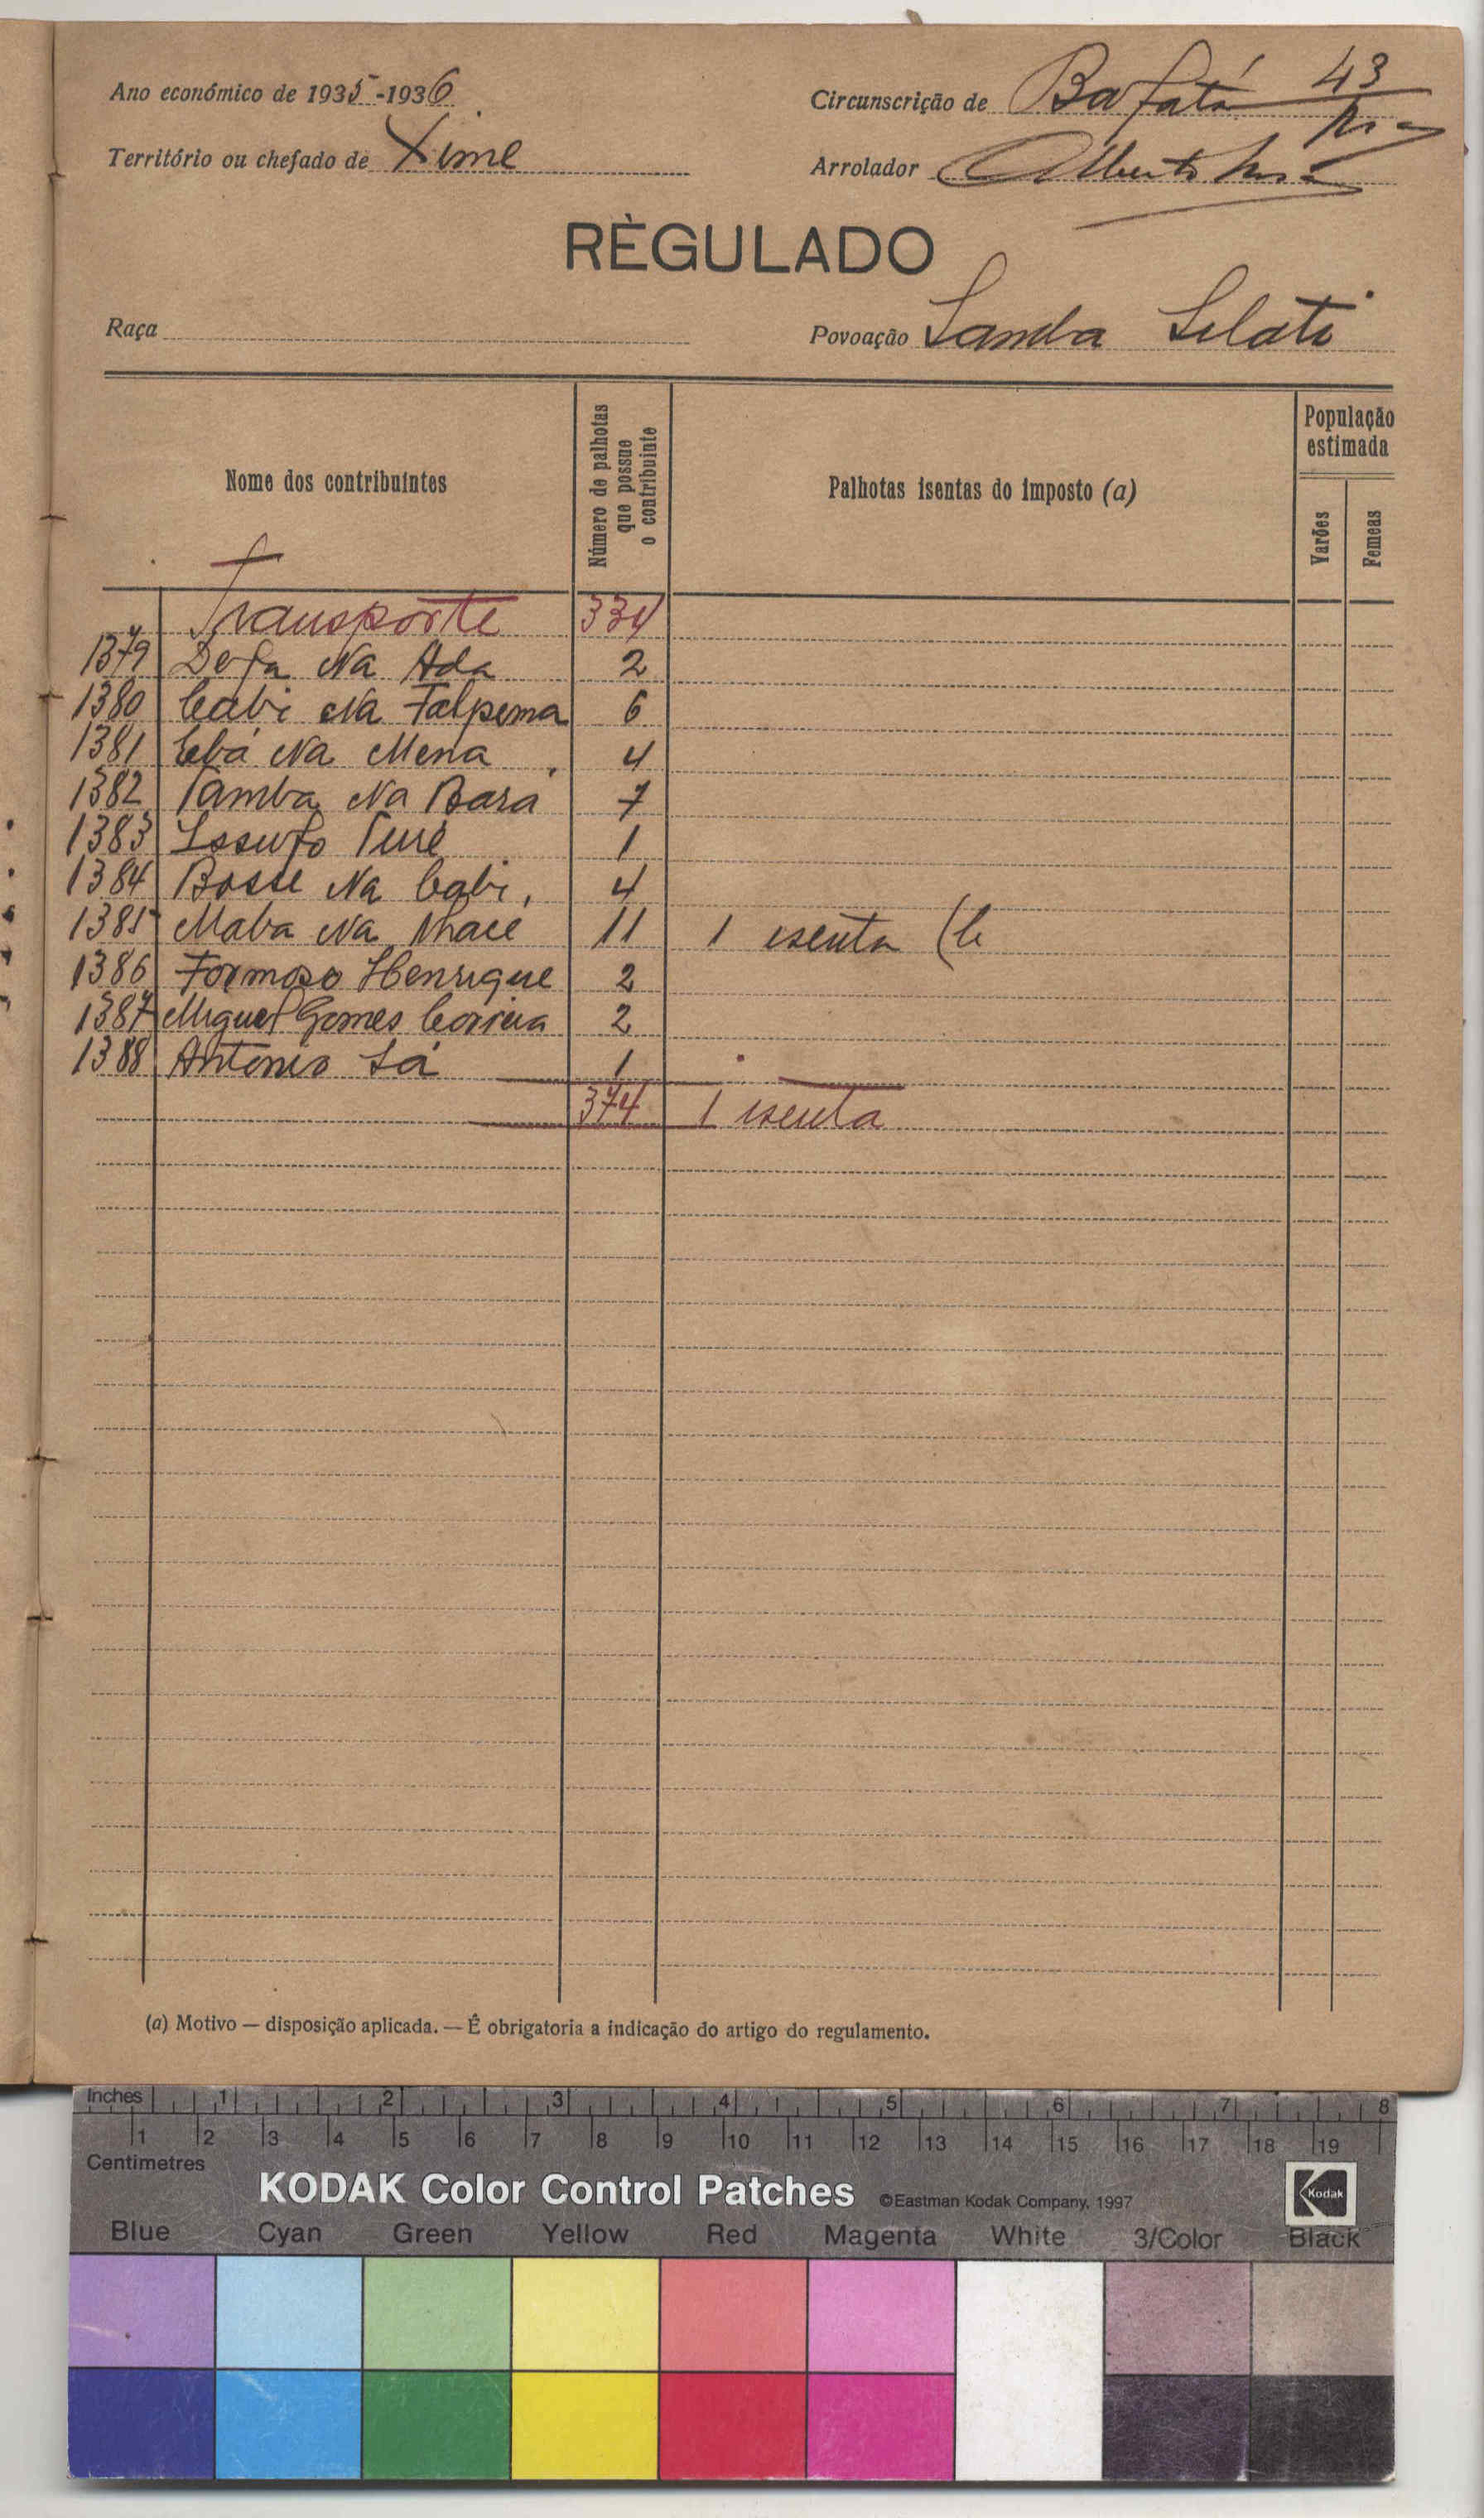 Ano económico de 1935-1936
Circunscrição de Bafatá 43
Território ou chefado de Xime
Arrolador Alberto
RÈGULADO
Raça
Povoação Samba Silate
Nome dos contribuintes
Número de palhotas que possue o contribuinte
Palhotas isentas do imposto (a)
População estimada
Varões
Femeas
Transporte 334
1379 Defa Na Ada 2
1380 Cabi Na Falpema 6
1381 Na Mena 4
1382 Tamba Na Bará 7
1383 Issufo Turé 1
1384 Bosse Na Cabi 4
1385 Maba Na Nhace 11 1 isenta (b
1386 Formoso Henrique 2
1387 Miguel Gomes Correia 2
1388 Antonio Sá 1
374 1 isenta
(a) Motivo — disposição aplicada. — É obrigatoria a indicação do artigo do regulamento.
Inches 1 2 3 4 5 6 7 8
1 2 3 4 5 6 7 8 9 10 11 12 13 14 15 16 17 18 19
Centimetres
KODAK Color Control Patches ©Eastman Kodak Company, 1997 Kodak
Blue Cyan Green Yellow Red Magenta White 3/Color Black